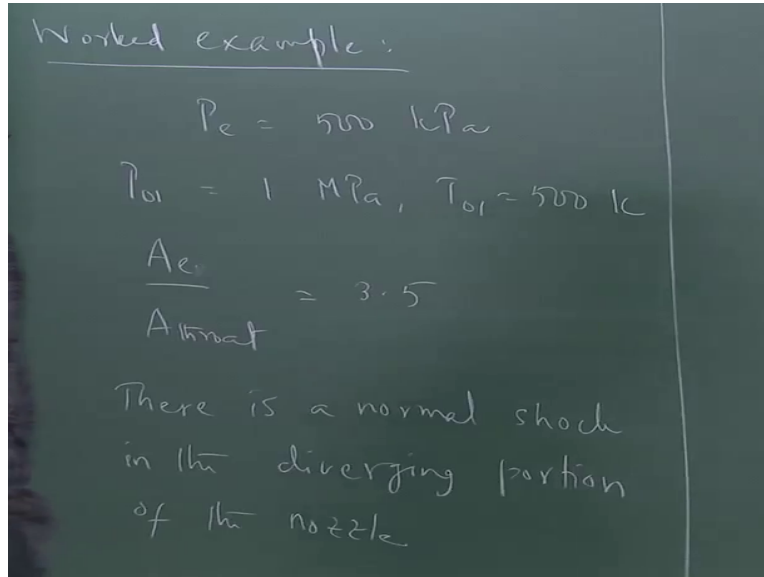 Worked example:
Pe = 500 kPa
P01 = 1 MPa, T01 = 500 K
Ae
= 3.5
Athroat
There is a normal shock
in the diverging portion
of the nozzle